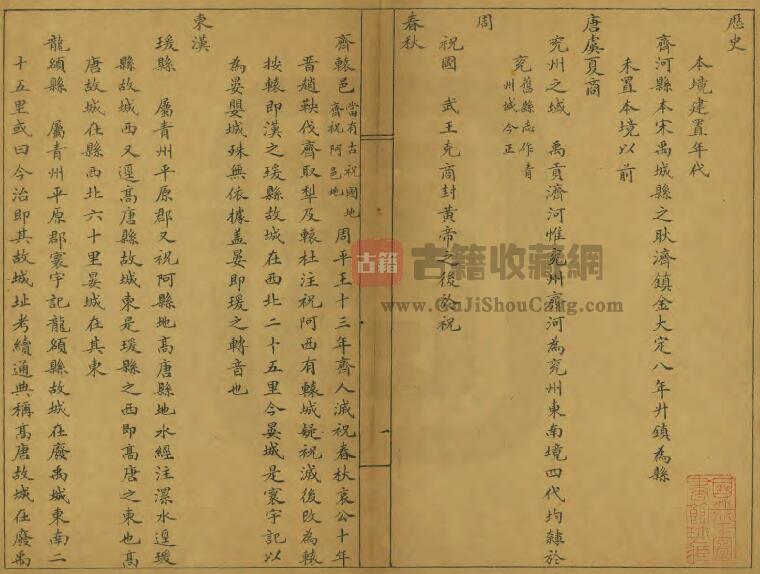 歷史
本境建置年代
齊河縣本宋禹城縣之耿濟鎮金大定八年升鎮為縣
未置本境以前
唐虞夏商
兖州之域　禹貢濟河惟兖州齊河為兖州東南境四代均隸於
兖舊縣志作青
州城今正
周
祝國　武王克商封黃帝之後於祝
春秋
齊轅邑當有古祝國地
齊祝阿邑地周平王十三年齊人滅祝春秋哀公十年
晉趙鞅伐齊取犁及轅杜注祝阿西有轅城疑祝滅後改為轅
按轅即漢之瑗縣故城在西北二十五里今晏城是寰宇記以
為晏嬰城殊無依據盖晏即瑗之轉音也
東漢
瑗縣　屬青州平原郡又祝阿縣地高唐縣地水經注漯水逕瑗
縣故城西又逕高唐縣故城東是瑗縣之西即高唐之東也高
唐故城在縣西北六十里晏城在其東
龍頟縣　屬青州平原郡寰宇記龍頟縣故城在廢禹城東南二
十五里或曰今治即其故城址考續通典稱高唐故城在廢禹
一
古籍
古籍收藏網
www.GuJiShouCang.com